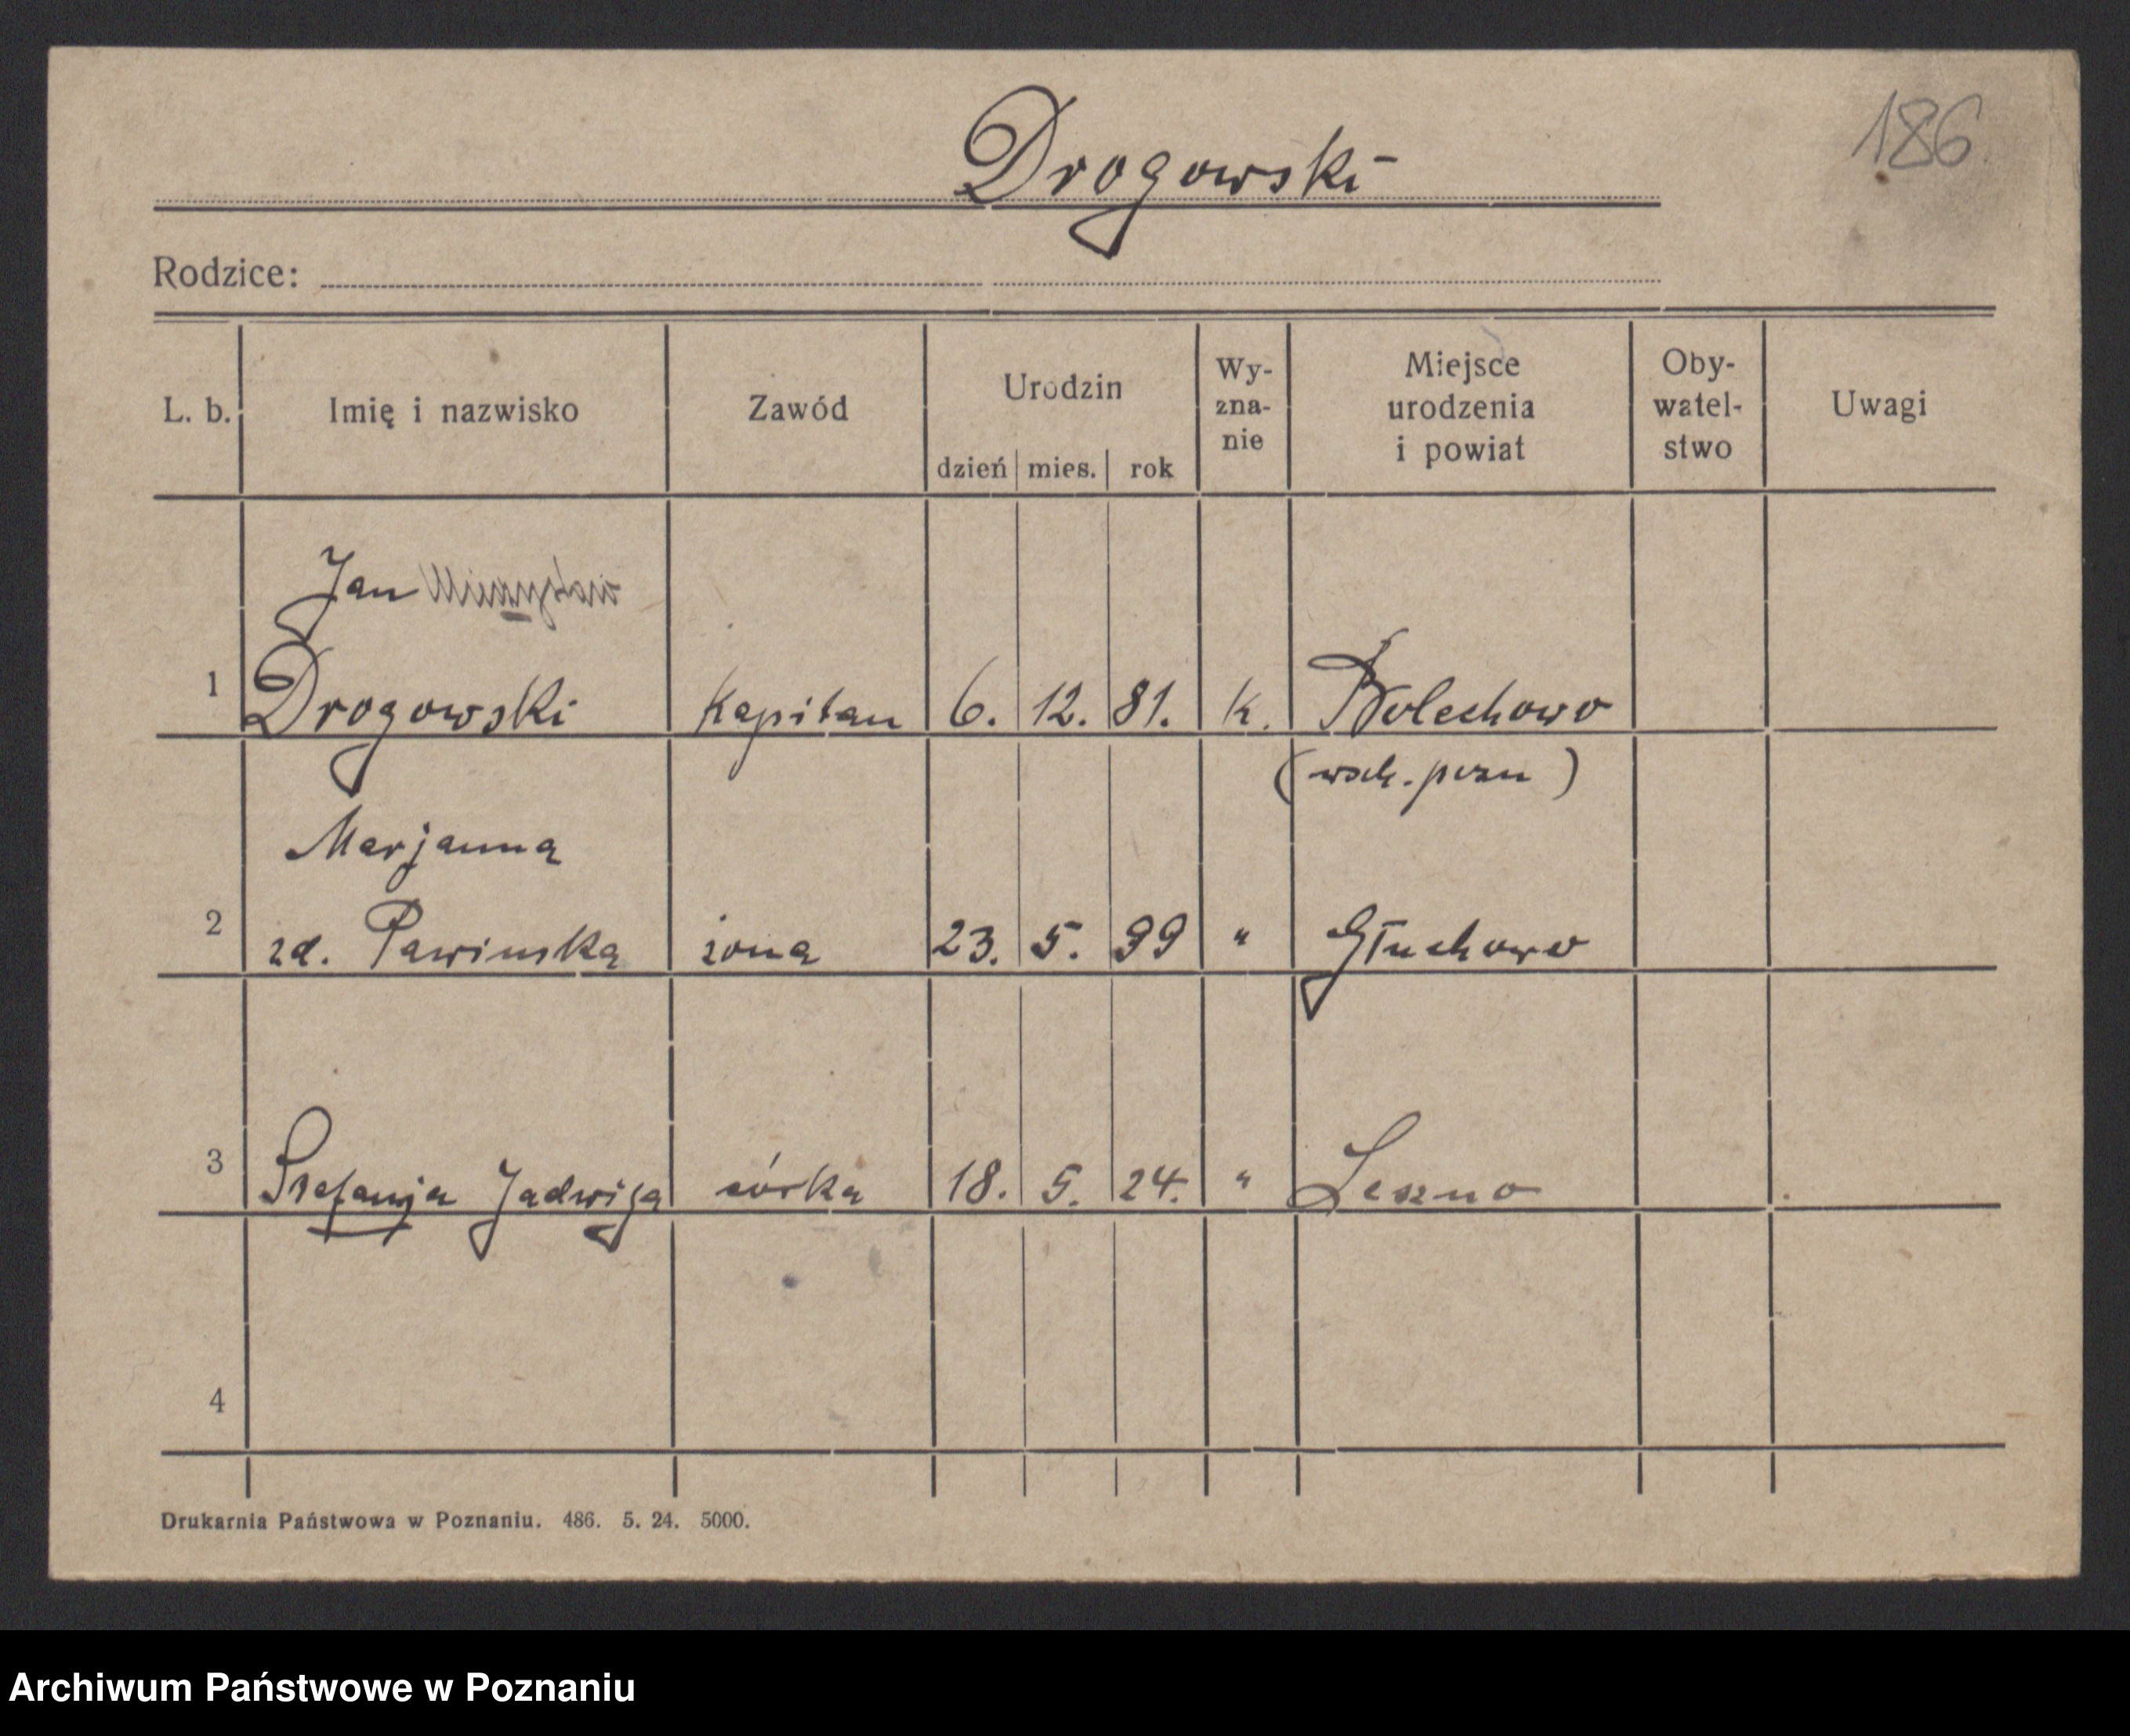 Drogowski
186.
Rodzice:
L. b. Imię i nazwisko Zawód Urodzin dzień mies. rok Wy-zna-nie Miejsce urodzenia i powiat Oby-watel-stwo Uwagi
Jan Mieczysław
1 Drogowski Kapitan 6. 12. 81. k. Bolechowo
(wsch. pozn)
Marjanna
2 zd. Pawinska żona 23. 5. 99 " Głuchowo
3 Stefanja Jadwiga córka 18. 5. 24. " Leszno
4
Drukarnia Państwowa w Poznaniu. 486. 5. 24. 5000.
Archiwum Państwowe w Poznaniu